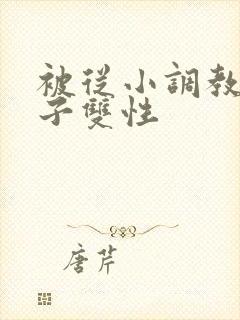 被從小調教
子雙性
唐芹